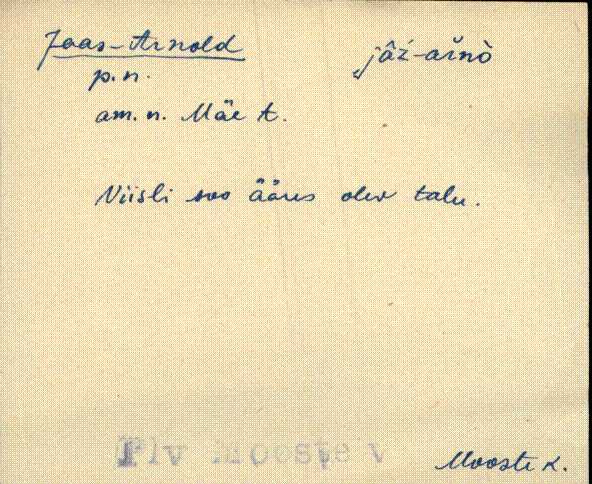 Jaas-Arnold jâź-aŕnò
p.n.
am. n. Mäe t.
Viisli soo ääres olev talu.
Plv Mooste v
Mooste k.